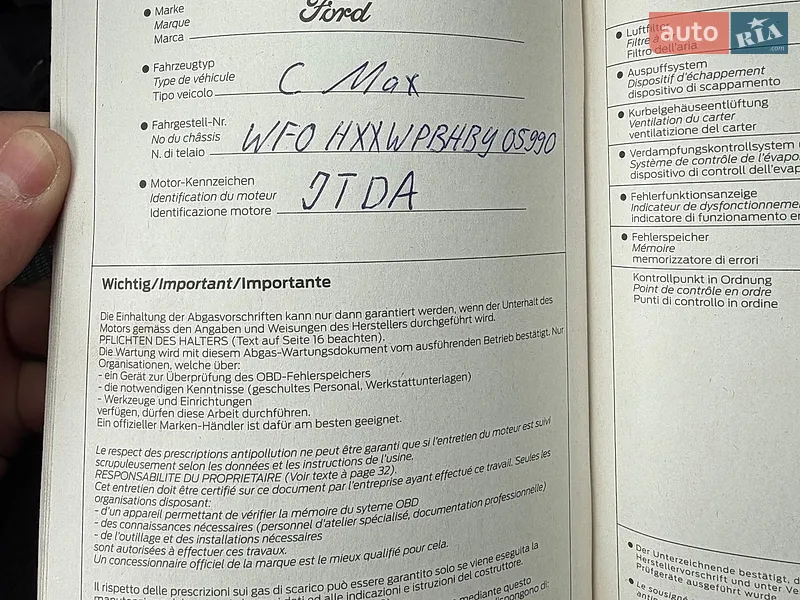 ● Marke
Marque
Marca
Ford
● Fahrzeugtyp
Type de véhicule
Tipo veicolo
C Max
● Fahrgestell-Nr.
No du châssis
N. di telaio
WF0HXXWPBHBY05990
● Motor-Kennzeichen
Identification du moteur
Identificazione motore
JTDA
Wichtig/Important/Importante
Die Einhaltung der Abgasvorschriften kann nur dann garantiert werden, wenn der Unterhalt des
Motors gemäss den Angaben und Weisungen des Herstellers durchgeführt wird.
PFLICHTEN DES HALTERS (Text auf Seite 16 beachten).
Die Wartung wird mit diesem Abgas-Wartungsdokument vom ausführenden Betrieb bestätigt. Nur
Organisationen, welche über:
- ein Gerät zur Überprüfung des OBD-Fehlerspeichers
- die notwendigen Kenntnisse (geschultes Personal, Werkstattunterlagen)
- Werkzeuge und Einrichtungen
verfügen, dürfen diese Arbeit durchführen.
Ein offizieller Marken-Händler ist dafür am besten geeignet.
Le respect des prescriptions antipollution ne peut être garanti que si l'entretien du moteur est suivi
scrupuleusement selon les données et les instructions de l'usine.
RESPONSABILITE DU PROPRIETAIRE (Voir texte à page 32).
Cet entretien doit être certifié sur ce document par l'entreprise ayant effectué ce travail. Seules les
organisations disposant:
- d'un appareil permettant de vérifier la mémoire du syteme OBD
- des connaissances nécessaires (personnel d'atelier spécialisé, documentation professionnelle)
- de l'outillage et des installations nécessaires
sont autorisées à effectuer ces travaux.
Un concessionnaire officiel de la marque est le mieux qualifié pour cela.
Il rispetto delle prescrizioni sui gas di scarico può essere garantito solo se viene eseguita la
ed alle indicazioni e istruzioni del costruttore.
mediante questo
● Luftfilter
Filtre à
Filtro dell'aria
● Auspuffsystem
Dispositif d'échappement
dispositivo di scappamento
● Kurbelgehäuseentlüftung
Ventilation du carter
ventilatizione del carter
● Verdampfungskontrollsystem
Système de contrôle de l'évapo
dispositivo di controll dell'evap
● Fehlerfunktionsanzeige
Indicateur de dysfonctionneme
indicatore di funzionamento e
● Fehlerspeicher
Mémoire
memorizzatore di errori
Kontrollpunkt in Ordnung
Point de contrôle en ordre
Punti di controllo in ordine
● Der Unterzeichnende bestätigt, d
Herstellervorschrift und unter Ve
Prüfgeräte ausgeführt wurde
● Le soussigné
auto RIA
.com